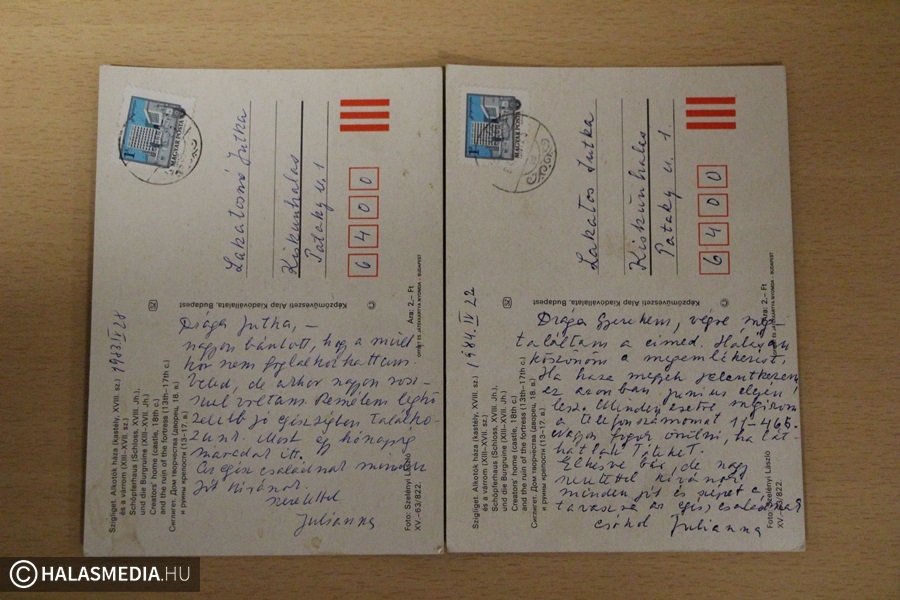 MAGYAR POSTA
Lakatosné Jutka
Kiskunhalas
Pataky u. 1
6 4 0 0
Képzőművészeti Alap Kiadóvállalata, Budapest
Ára: 2,- Ft
1983. IV 28
Szigliget. Alkotók háza (kastély, XVIII. sz.)
és a várrom (XIII–XVII. sz.)
Schöpferhaus (Schloss, XVIII. Jh.),
und die Burgruine (XIII–XVII. Jh.)
Creators' home (castle, 18th c.)
and the ruin of the fortress (13th–17th c.)
Сиглигет. Дом творчества (дворец, 18. в.)
и руины крепости (13–17. в.)
Foto: Szelényi László
XV.–63/822.
Drága Jutka, –
nagyon bántott, hogy a múlt-
kor nem foglalkozhattam
Veled, de akkor nagyon rosz-
szul voltam. Remélem legkö-
zelebb jó egészségben találko-
zunk. Most egy hónapig
maradok itt.
Az egész családnak minden
jót kívánok.
szeretettel
Julianna
MAGYAR POSTA
Lakatos Jutka
Kiskunhalas
Pataky u. 1.
6 4 0 0
Képzőművészeti Alap Kiadóvállalata, Budapest
Ára: 2,- Ft
1984. IV 22
Szigliget. Alkotók háza (kastély, XVIII. sz.)
és a várrom (XIII–XVII. sz.)
Schöpferhaus (Schloss, XVIII. Jh.),
und die Burgruine (XIII–XVII. Jh.)
Creators' home (castle, 18th c.)
and the ruin of the fortress (13th–17th c.)
Сиглигет. Дом творчества (дворец, 18. в.)
и руины крепости (13–17. в.)
Foto: Szelényi László
XV.–63/822.
Drága Gyerekem, végre meg-
találtam a címed. Hálásan
köszönöm a megemlékezést.
Ha haza megyek jelentkezem,
ez azonban június elején
lesz. Minden esetre megírom
a telefonszámomat 11-465.
Nagyon fogok örülni, ha lát-
hatlak Titeket.
Elkésve bár, de nagy
szeretettel kívánok
minden jót és szépet a
tavaszra az egész családnak
csókol Julianna
© HALASMEDIA.HU